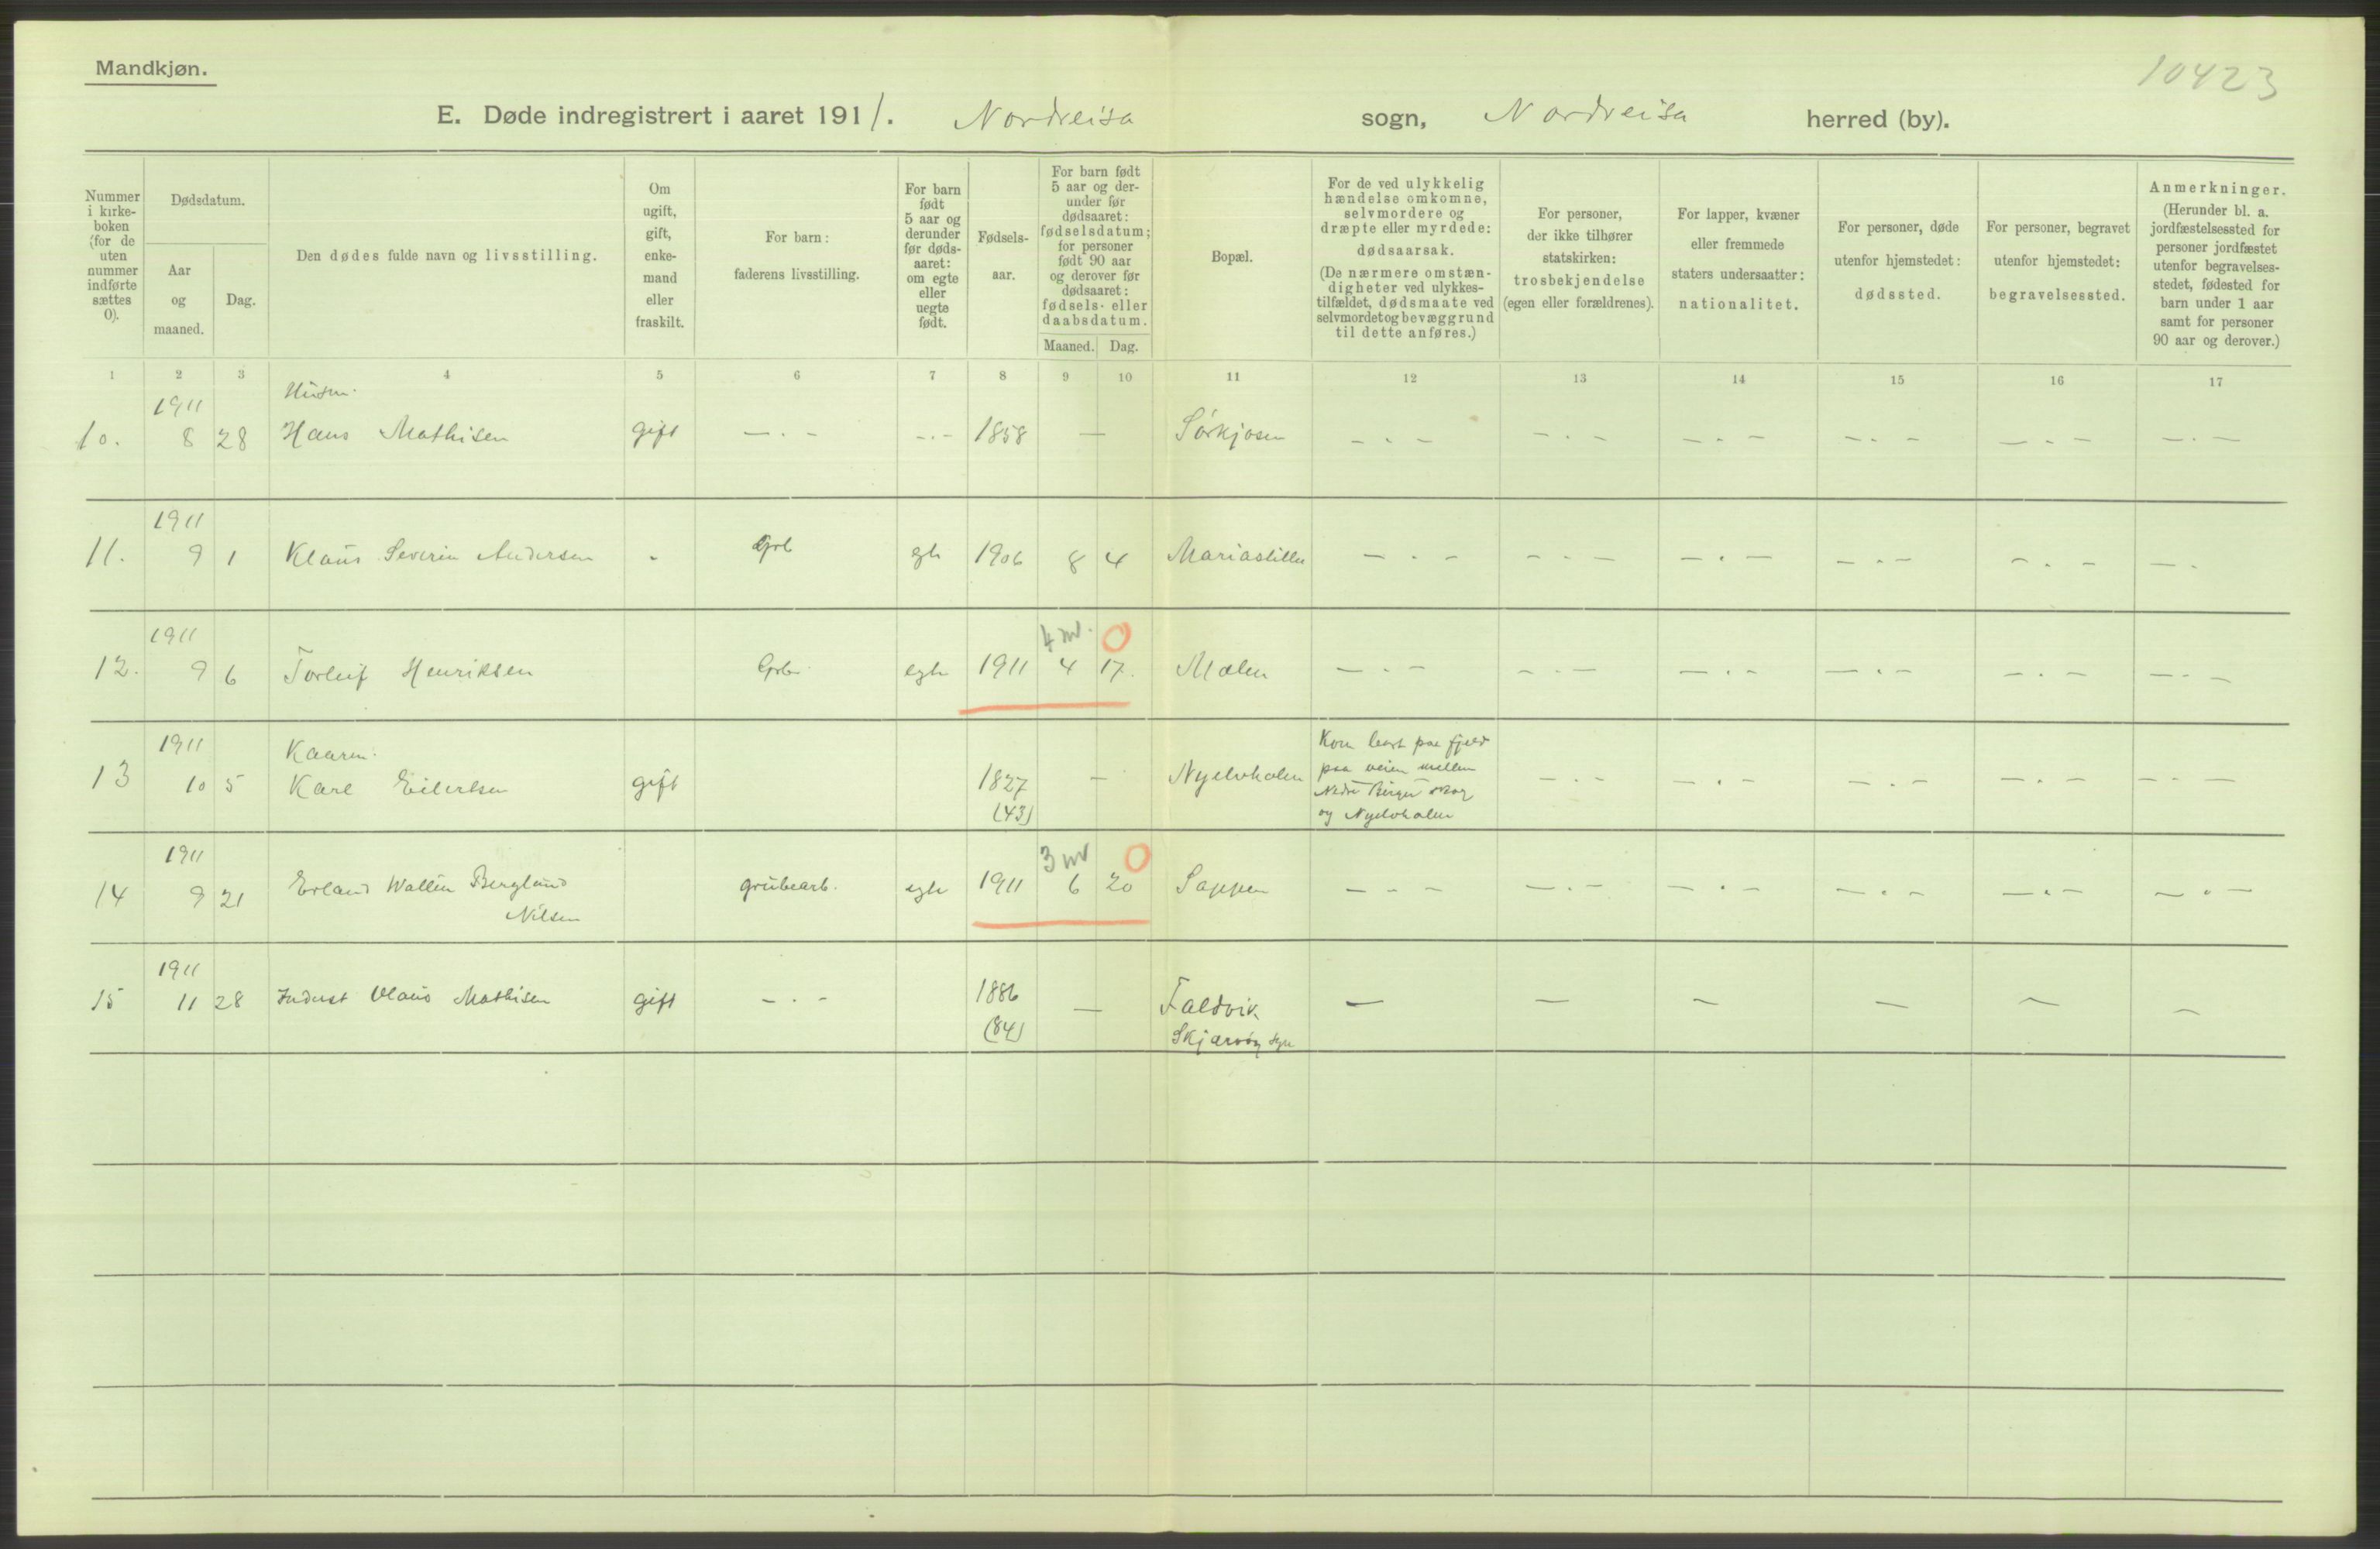 Mandkjøn.
10423
E. Døde indregistrert i aaret 1911. Nordreisa sogn, Nordreisa herred (by).
Nummer i kirke-boken (for de uten nummer indførte sættes 0).
Dødsdatum.
Aar og maaned.
Dag.
Den dødes fulde navn og livsstilling.
Om ugift, gift, enke-mand eller fraskilt.
For barn: faderens livsstilling.
For barn født 5 aar og derunder før døds-aaret: om egte eller uegte født.
Fødsels-aar.
For barn født 5 aar og der-under før dødsaaret: fødselsdatum; for personer født 90 aar og derover før dødsaaret: fødsels- eller daabsdatum.
Maaned. Dag.
Bopæl.
For de ved ulykkelig hændelse omkomne, selvmordere og dræpte eller myrdede: dødsaarsak. (De nærmere omstæn-digheter ved ulykkes-tilfældet, dødsmaate ved selvmordet og bevæggrund til dette anføres.)
For personer, der ikke tilhører statskirken: trosbekjendelse (egen eller forældrenes).
For lapper, kvæner eller fremmede staters undersaatter: nationalitet.
For personer, døde utenfor hjemstedet: dødssted.
For personer, begravet utenfor hjemstedet: begravelsessted.
Anmerkninger. (Herunder bl. a. jordfæstelsessted for personer jordfæstet utenfor begravelses-stedet, fødested for barn under 1 aar samt for personer 90 aar og derover.)
1 2 3 4 5 6 7 8 9 10 11 12 13 14 15 16 17
1911
10. 8 28 Hans Mathisen gift — . — — . — 1858 — Sørkjosen — . — — . — — . — — . — — . — — . —
1911
11. 9 1 Klaus Severin Andersen - Grb egte 1906 8 4 — . — — . — — . — — . — — . — — .
1911 4 m. 0
12. 9 6 Torleif Henriksen Grbr. egte 1911 4 17. Mælen — . — — . — — . — — . — — . — — . —
1911 Kaarm.
13 10 5 Karl Eilertsen gift 1827 — — . — — . — — . — — . — — . —
(43)
Kom bort paa fjeld
paa veien mellem
og
1911 3 m 0
14 9 21 Erland Wallin Berglund grubearb. egte 1911 6 20 Sappen — . — — . — — . — — . — — . — — . —
Nilsen
1911
15 11 28 Olaus Mathisen gift — . — 1886 — — — — — — —
(84)
Skjærvøy